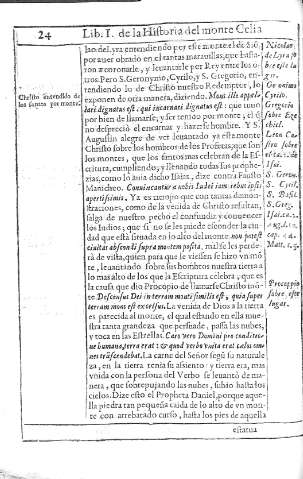 24
Lib. I. de la Historia del monte Celia
Christo entendido de
los santos por monte.
lao del yra entendiendo por este monte el de Siō,
por auer obrado en el cantas marauillas, que basta-
ron a coronarle, y leuantarle por Rey entre los o-
tros. Pero S. Geronymo, Cyrilo, y S. Gregorio, en-
tendiendo lo de Christo nuestro Redemptor, lo
exponen de otra manera, diziendo. Mons ille appela-
dari dignatus est: qui incarnari dignatus est: que tuuo
por bien de llamarse, y ser tenido por monte, el q̄
no despreció el encarnar y hazerse hombre. Y S.
Augustin alegre de ver leuantado ya este monte
Christo sobre los hombros de los Profetas, que son
los montes, que los famosos mas celebra la Es-
critura, cumpliendo, y llenando todas sus prophe-
zias, como lo auia dicho Isaias, dize contra Fausto
Manicheo. Conuincantur a vobis Iudei iam rebus ipsis
apertissimis. Ya es tiempo que con tantas demons-
traciones, como de la venida de Christo resultan,
salga de nuestro pecho el confundir, y conuencer
los Iudios; que si no se les puede esconder la ciu-
dad que está situada en lo alto del monte non potest
ciuitas abscondi supra montem posita, mal se les perde-
rá de vista, quien para que le viessen se hizo vn mō
te, leuantando sobre los hombros nuestra tierra a
lo mas alto de los que la Escriptura celebra, que es
la causa que dio Procopio de llamarse Christo mō-
te Descensus Dei in terram monti similis est, quia super
terram mons est excelsus. La venida de Dios a la tierra
es parecida al monte, el qual estando en ella mues-
tra tanta grandeza que persuade, passa las nubes,
y toca en las Estrellas. Caro vero Domini pro conditio-
ne humana, terra erat: & quod verbo vnita erat celos om-
nes trāscendebat. La carne del Señor segū su naturale
za, en la tierra tenia su assiento: y tierra era, mas
vnida con la persona del Verbo se leuantó de ma-
nera, que sobrepujando las nubes, subio hasta los
cielos. Dize esto el Propheta Daniel, porque aque-
lla piedra tan pequeña caida de lo alto de vn mon-
te con arrebatado curso, hasta los pies de aquella
estatua
Nicolao
de Lyra so-
bre este lu-
gar.
Cyrilo.
Gregorio
sobre Eze-
chiel.
Isai.
S. Geron.
S. Cyril.
S. Basil.
S. Greg.
Matt. c. 5.
Procopio
sobre este
lugar.